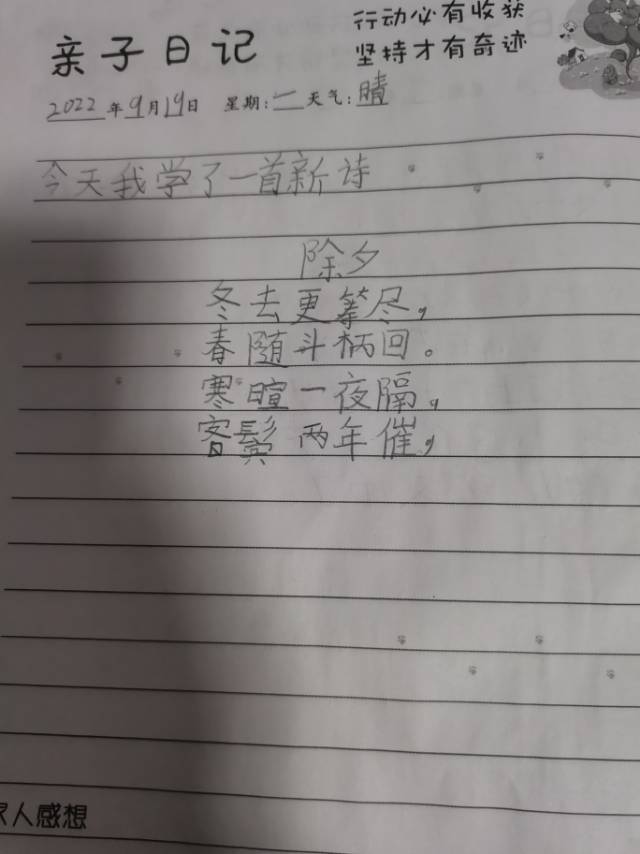 亲子日记
行动必有收获
坚持才有奇迹
2022年9月19日 星期:一 天气:晴
今天我学了一首新诗
除夕
冬去更筹尽,
春随斗柄回。
寒暄一夜隔,
客鬓两年催,
人感想